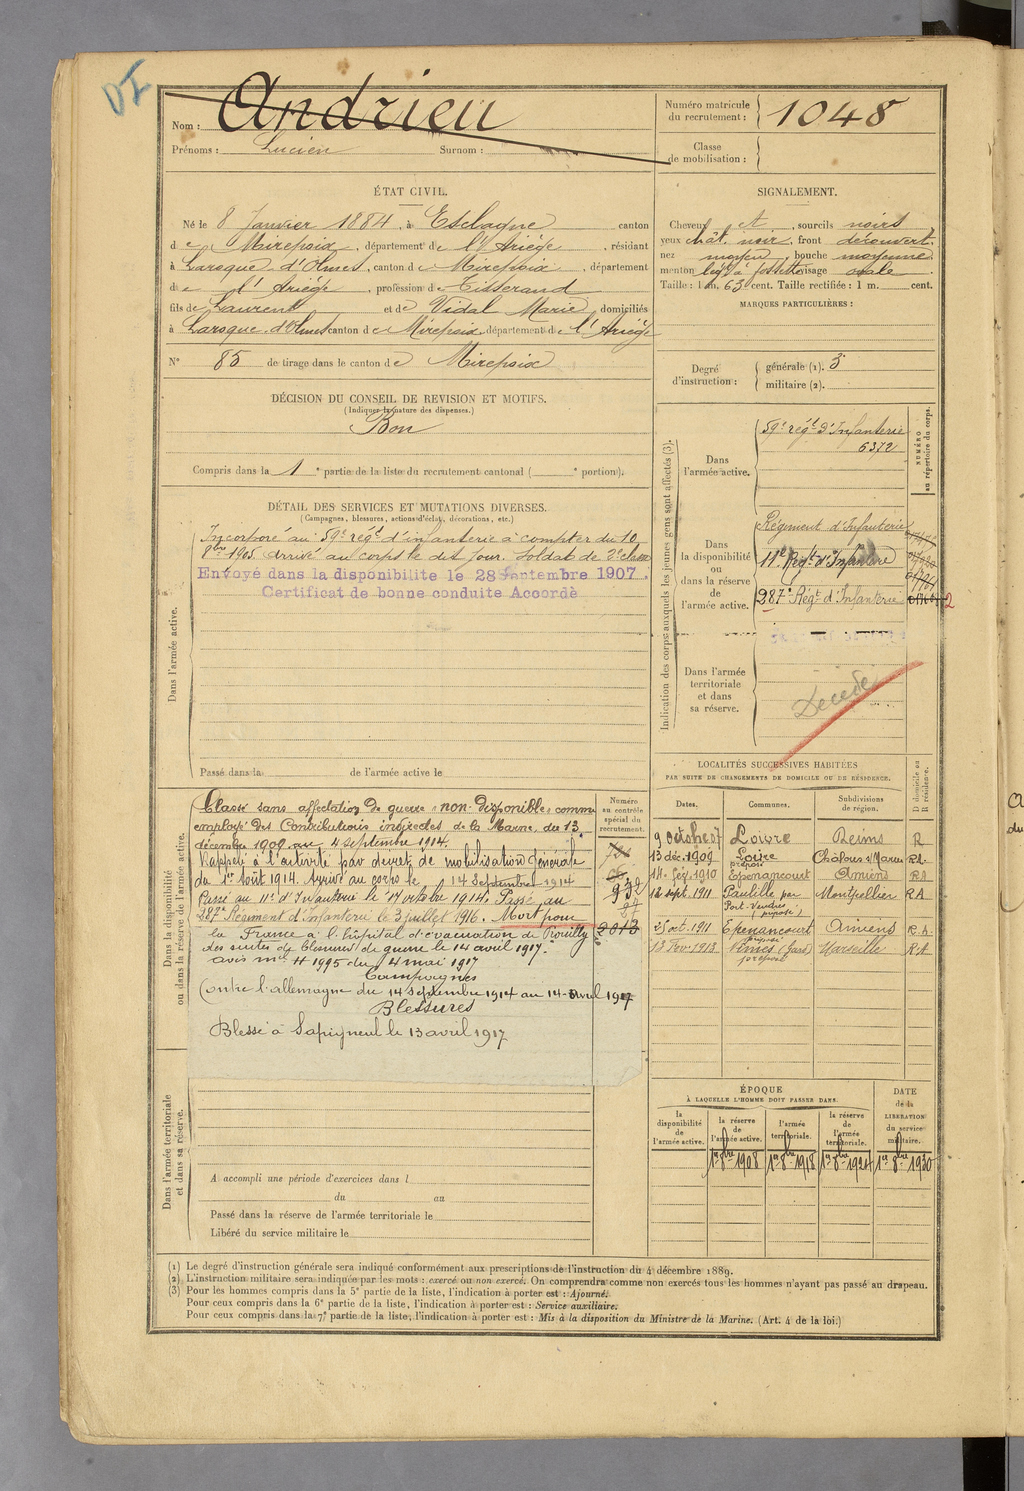 DI
Nom : Andrieu
Prénoms : Lucien Surnom :
Numéro matricule du recrutement : 1048
Classe de mobilisation :
ÉTAT CIVIL.
Né le 8 Janvier 1884, à Esclagne canton
de Mirepoix, département de l'Ariège, résidant
à Laroque d'Olmes, canton de Mirepoix, département
de l'Ariège, profession de Tisserand
fils de Laurent et de Vidal Marie domiciliés
à Laroque d'Olmes canton de Mirepoix département de l'Ariège
N° 85 de tirage dans le canton de Mirepoix
SIGNALEMENT.
Cheveux et, sourcils noirs
yeux chât. noir, front découvert
nez moyen, bouche moyenne
menton à fossette visage ovale
Taille : 1 m. 63 cent. Taille rectifiée : 1 m. cent.
MARQUES PARTICULIÈRES :
Degré d'instruction : générale (1). 3
militaire (2).
DÉCISION DU CONSEIL DE REVISION ET MOTIFS.
(Indiquer la nature des dispenses.)
Bon
Compris dans la 1e partie de la liste du recrutement cantonal ( e portion).
DÉTAIL DES SERVICES ET MUTATIONS DIVERSES.
(Campagnes, blessures, actions d'éclat, décorations, etc.)
Dans l'armée active.
Incorporé au 59e régt d'infanterie à compter du 10
8bre 1905 arrivé au corps le dit jour. Soldat de 2e classe
Envoyé dans la disponibilite le 28 Septembre 1907.
Certificat de bonne conduite Accordé
Passé dans la de l'armée active le
Indication des corps auxquels les jeunes gens sont affectés (3).
NUMÉRO au répertoire du corps.
Dans l'armée active.
59e régt d'Infanterie
6372
Dans la disponibilité ou dans la réserve de l'armée active.
Régiment d'Infanterie
11e Régt d'Infanterie
287e Régt d'Infanterie
Dans l'armée territoriale et dans sa réserve.
Décédé
LOCALITÉS SUCCESSIVES HABITÉES
PAR SUITE DE CHANGEMENTS DE DOMICILE OU DE RÉSIDENCE.
Dates. Communes. Subdivisions de région. D domicile ou R résidence.
9 octobre 07 Loivre Reims R
13 déc. 1909 Loivre préposé Châlons s/Marne RA.
14 fév. 1910 Epénancourt Amiens RA
12 sept. 1911 Paulille par Port-Vendres (préposé) Montpellier RA
25 oct. 1911 Epénancourt préposé Amiens R.A.
13 Fév. 1913 Nîmes (Gard) préposé Marseille RA
Dans la disponibilité ou dans la réserve de l'armée active.
Numéro au contrôle spécial du recrutement.
Classé sans affectation de guerre "non-disponible" comme
employé des Contributions indirectes de la Marne, du 13
décembre 1909 au 4 septembre 1914.
Rappelé à l'activité par décret de mobilisation Générale
du 1er Août 1914. Arrivé au corps le 14 septembre 1914
Passé au 11e d'Infanterie le 17 octobre 1914. Passé au
287e Régiment d'Infanterie le 3 juillet 1916. Mort pour
la France à l'hôpital d'évacuation de Prouilly
des suites de blessures de guerre le 14 avril 1917.
avis mel H 1995 du 4 mai 1917
Campagnes
Contre l'allemagne du 14 septembre 1914 au 14 avril 1917
Blessures
Blessé à Sapigneul le 13 avril 1917
932
2013
Dans l'armée territoriale et dans sa réserve.
A accompli une période d'exercices dans l
du au
Passé dans la réserve de l'armée territoriale le
Libéré du service militaire le
ÉPOQUE
À LAQUELLE L'HOMME DOIT PASSER DANS.
DATE de la LIBÉRATION du service militaire.
la disponibilité de l'armée active. la réserve de l'armée active. l'armée territoriale. la réserve de l'armée territoriale.
1er 8bre 1908 1er 8bre 1918 1er 8bre 1924 1er 8bre 1930
(1) Le degré d'instruction générale sera indiqué conformément aux prescriptions de l'instruction du 4 décembre 1889.
(2) L'instruction militaire sera indiquée par les mots : exercé ou non exercé. On comprendra comme non exercés tous les hommes n'ayant pas passé au drapeau.
(3) Pour les hommes compris dans la 5e partie de la liste, l'indication à porter est : Ajourné.
Pour ceux compris dans la 6e partie de la liste, l'indication à porter est : Service auxiliaire.
Pour ceux compris dans la 7e partie de la liste, l'indication à porter est : Mis à la disposition du Ministre de la Marine. (Art. 4 de la loi.)